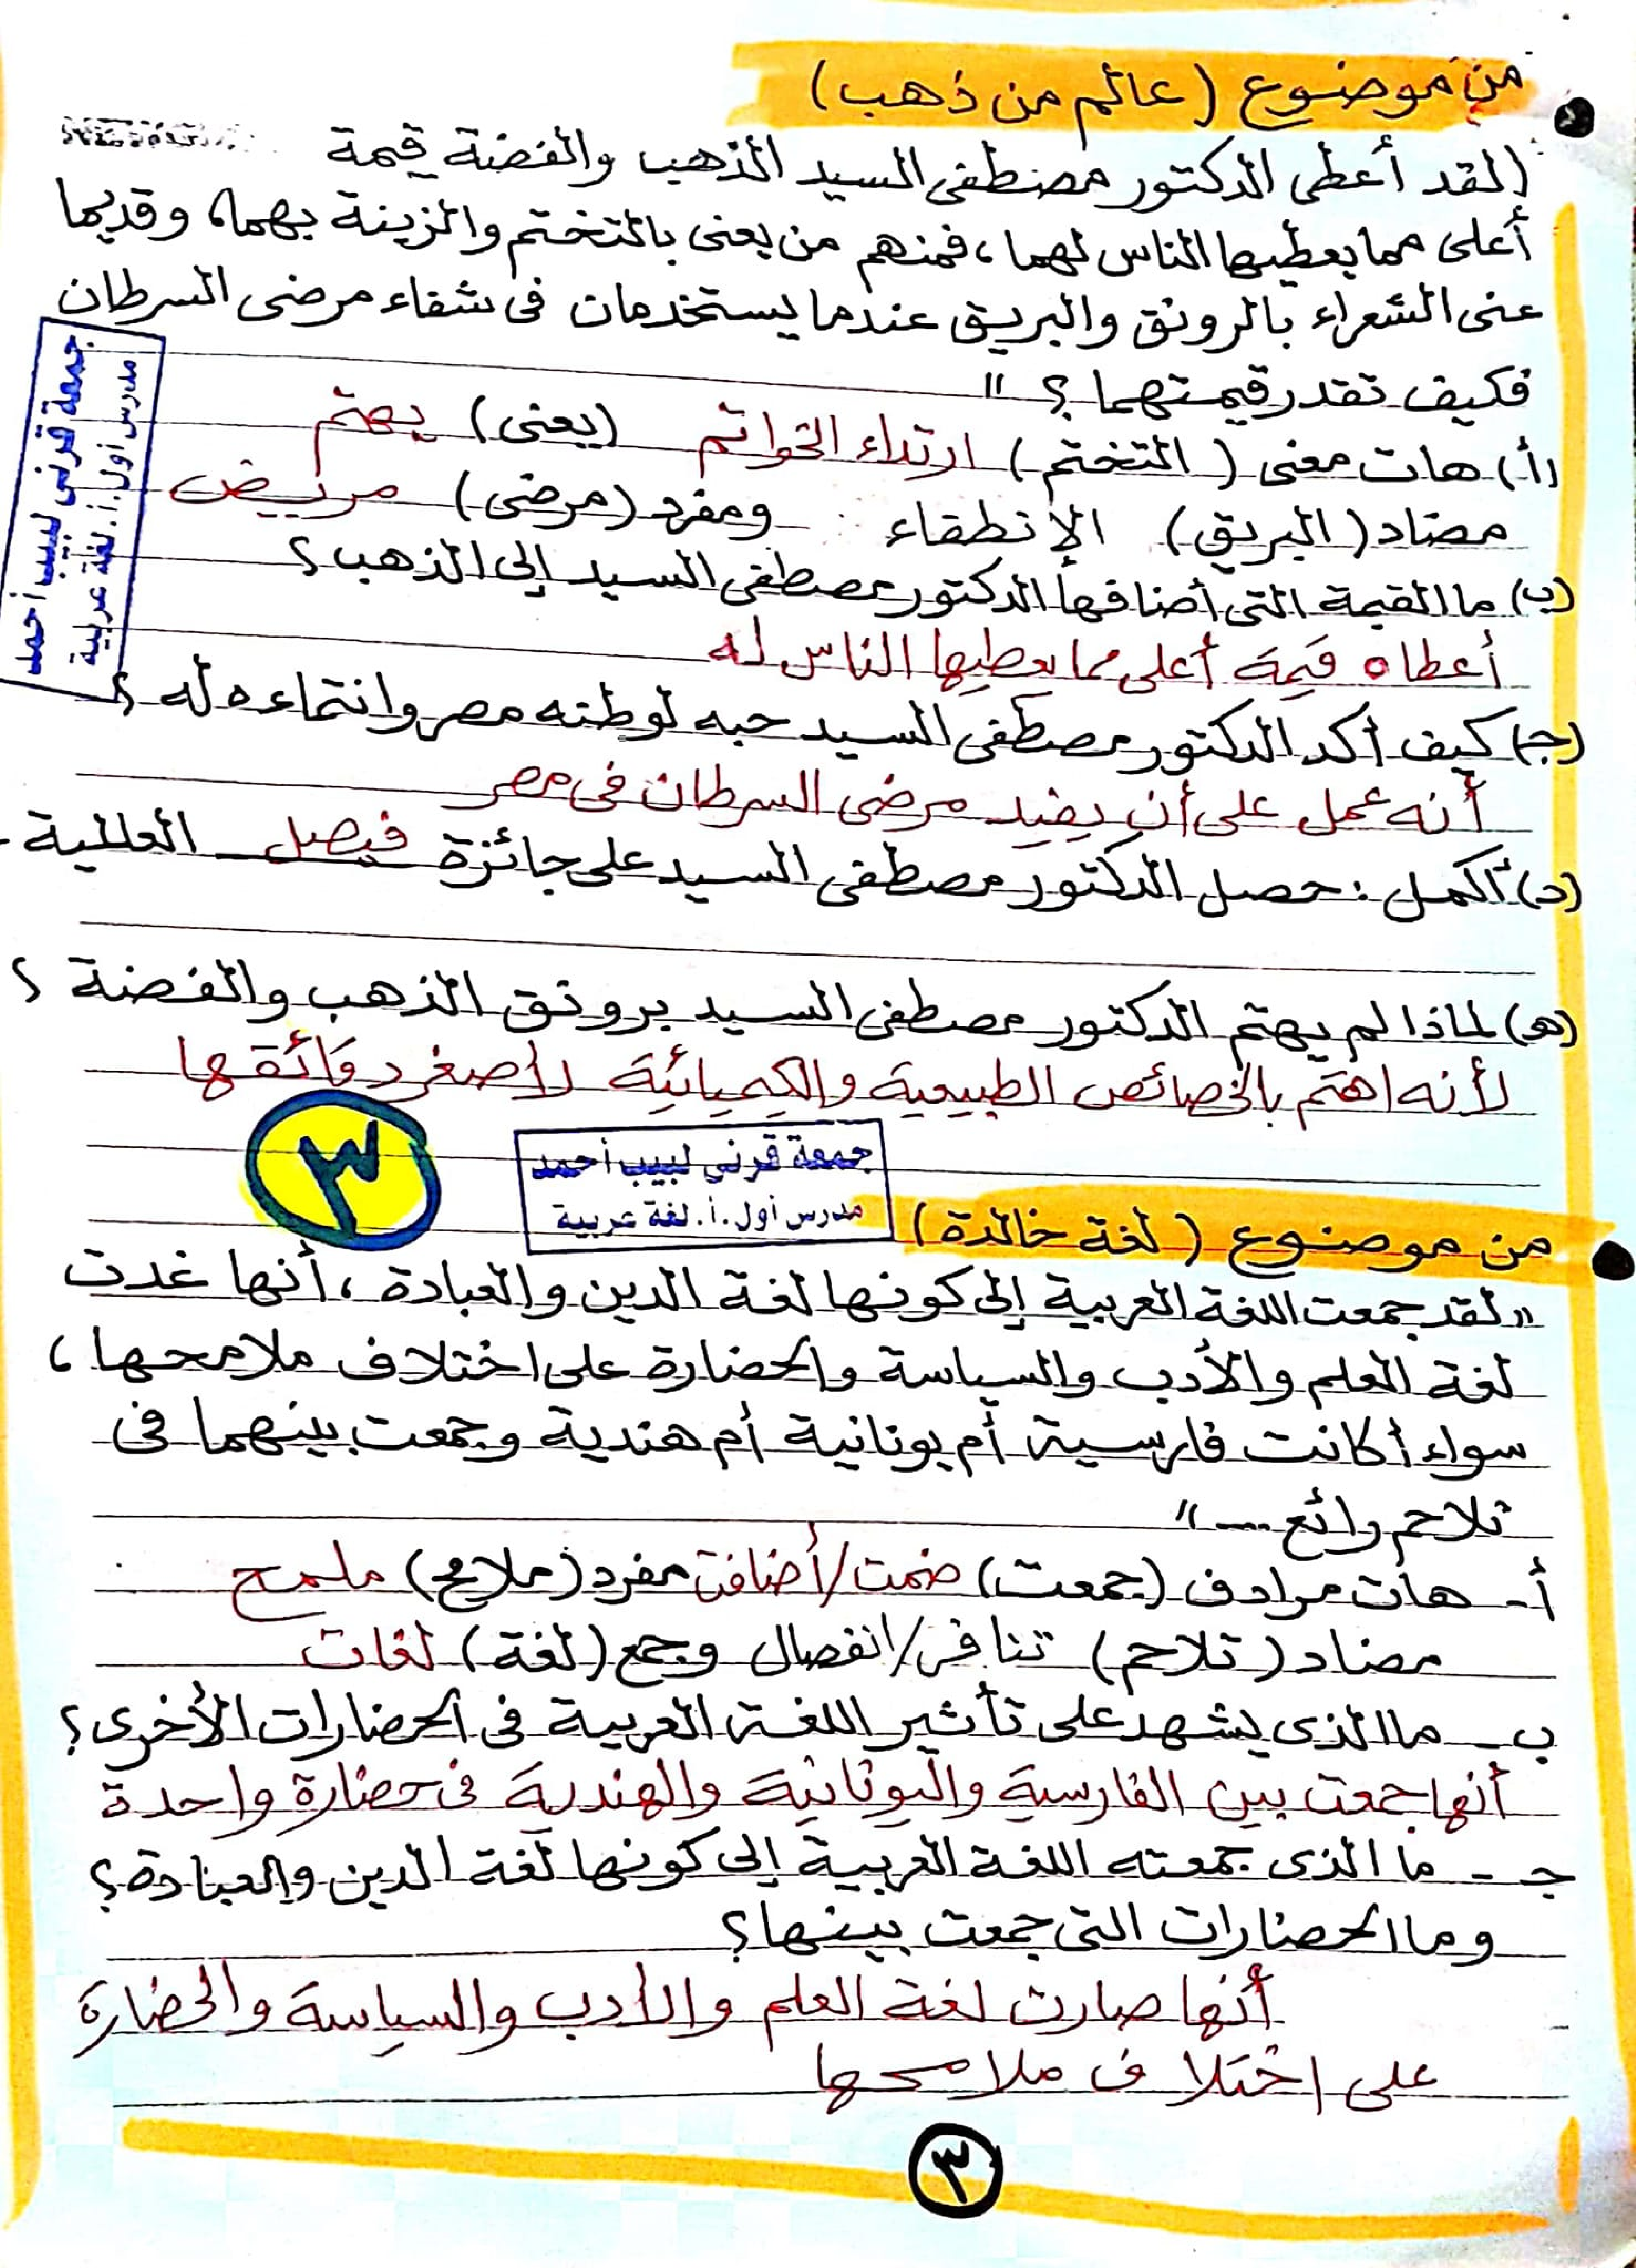 من موضوع (عالم من ذهب)
(لقد أعطى الدكتور مصطفى السيد الذهب والفضة قيمة
أعلى مما يعطيها الناس لهما، فمنهم من يعنى بالتختم والزينة بهما، وقديما
عنى الشعراء بالرونق والبريق عندما يستخدمان فى شفاء مرضى السرطان
فكيف تقدر قيمتهما؟"
(أ) هات معنى (التختم) ارتداء الخواتم (يعنى) يهتم
مضاد (البريق) الإنطفاء ومفرد (مرضى) مريض
(ب) ما القيمة التى أضافها الدكتور مصطفى السيد إلى الذهب؟
أعطاه قيمة أعلى مما يعطيها الناس له
(جـ) كيف أكد الدكتور مصطفى السيد حبه لوطنه مصر وانتماءه له؟
أنه عمل على أن يفيد مرضى السرطان فى مصر
(د) أكمل: حصل الدكتور مصطفى السيد على جائزة فيصل العالمية.
(هـ) لماذا لم يهتم الدكتور مصطفى السيد برونق الذهب والفضة؟
لأنه اهتم بالخصائص الطبيعية والكيميائية لأصغر دقائقها
٣
جمعة قرني لبيب أحمد
مدرس أول.أ.لغة عربية
جمعة قرني لبيب أحمد
مدرس أول.أ.لغة عربية
من موضوع (لغة خالدة)
"لقد جمعت اللغة العربية إلى كونها لغة الدين والعبادة، أنها غدت
لغة العلم والأدب والسياسة والحضارة على اختلاف ملامحها،
سواء أكانت فارسية أم يونانية أم هندية وجمعت بينهما فى
تلاحم رائع ...."
أ- هات مرادف (جمعت) ضمت/أضافت مفرد (ملامح) ملمح
مضاد (تلاحم) تنافر/انفصال وجمع (لغة) لغات
ب- ما الذى يشهد على تأثير اللغة العربية فى الحضارات الأخرى؟
أنها جمعت بين الفارسية واليونانية والهندية فى حضارة واحدة
جـ- ما الذى جمعته اللغة العربية إلى كونها لغة الدين والعبادة؟
وما الحضارات التى جمعت بينها؟
أنها صارت لغة العلم والأدب والسياسة والحضارة
على اختلاف ملامحها
٣